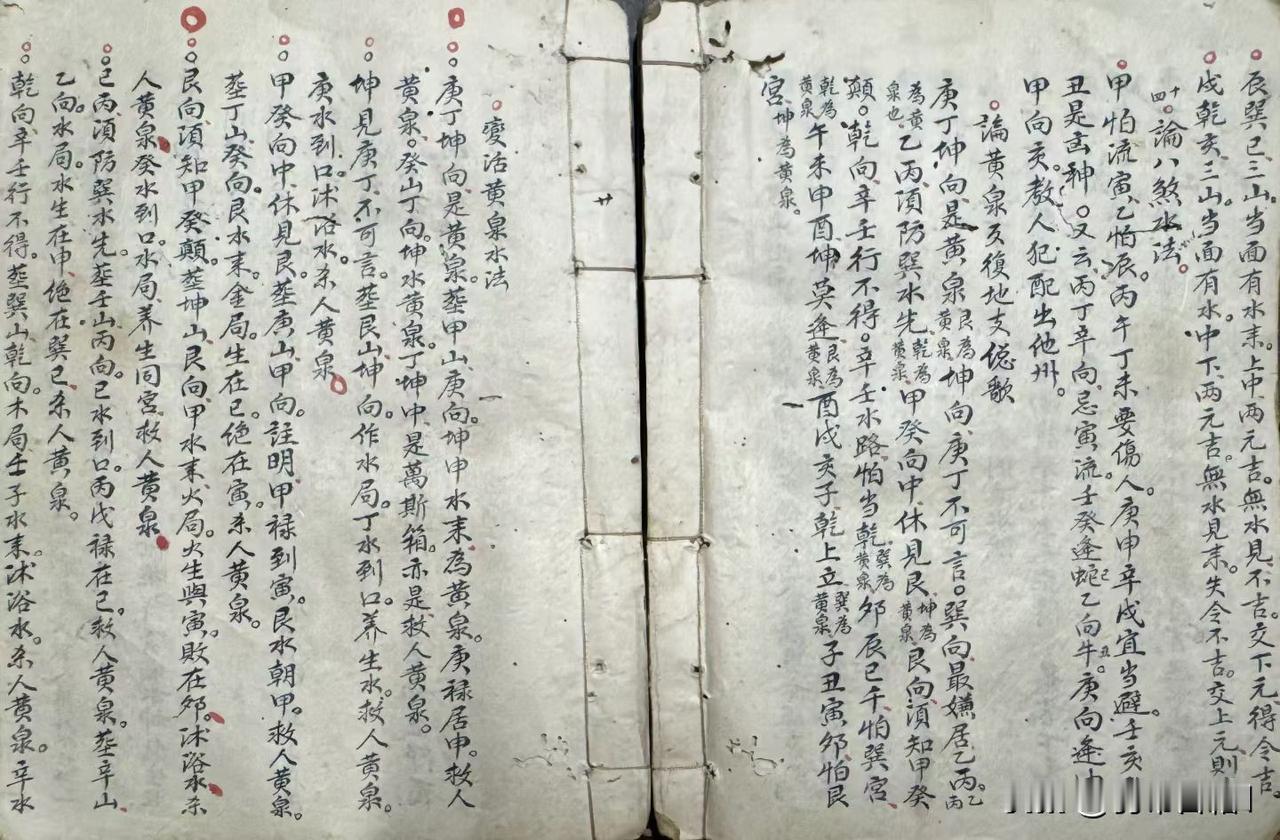 辰巽巳三山。當面有水耒。上中两元吉。無水見不吉。交下元得令吉。
戌乾亥三山。當面有水。中下两元吉。無水見耒。失令不吉。交上元則
十四。論八煞水法。
甲怕流寅。乙怕辰。丙午丁未要傷人。庚申辛戌宜當避。壬亥
丑是凾神。又云丙丁辛向忌寅流。壬癸逢蛇巳乙向牛丑。庚向逢
甲向亥。教人犯配出他州。
論黃泉反復地支總歌
庚丁坤向是黃泉艮為黃泉坤向庚丁不可言。巽向最嫌居乙丙。乙丙
為黃泉也乙丙須防巽水先乾為黃泉甲癸向中休見艮坤為黃泉艮向須知甲癸
顛。乾向辛壬行不得。辛壬水路怕当乾巽為黃泉夘辰巳千怕巽宮
乾為黃泉午未申酉坤莫逢艮為黃泉酉戌亥子乾上立巽為黃泉子丑寅夘怕艮
宮坤為黃泉。
變活黃泉水法
庚丁坤向是黃泉。塟甲山庚向。坤申水耒為黃泉。庚禄居申。救人
黃泉。癸山丁向。坤水黃泉。丁坤中是萬斯箱。亦是救人黃泉。
坤見庚丁不可言。塟艮山坤向。作水局。丁水到口。养生水。救人黃泉。
庚水到口。沭浴水。杀人黃泉
甲癸向中休見艮。塟庚山甲向。註明甲禄到寅。艮水朝甲。救人黃泉。
塟丁山癸向。艮水耒。金局。生在巳。绝在寅。杀人黃泉。
艮向須知甲癸顛。塟坤山艮向。甲水耒。火局。火生與寅。敗在夘。沭浴水。杀
人黃泉。癸水到口。水局。养生同宮。救人黃泉
乙丙須防巽水先。塟壬山丙向。巳水到口。丙戊禄在巳。救人黃泉。塟辛山
乙向。水局。水生在申。绝在巽巳。杀人黃泉。
乾向辛壬行不得。塟巽山乾向。木局。壬子水耒。沭浴水。杀人黃泉。辛水